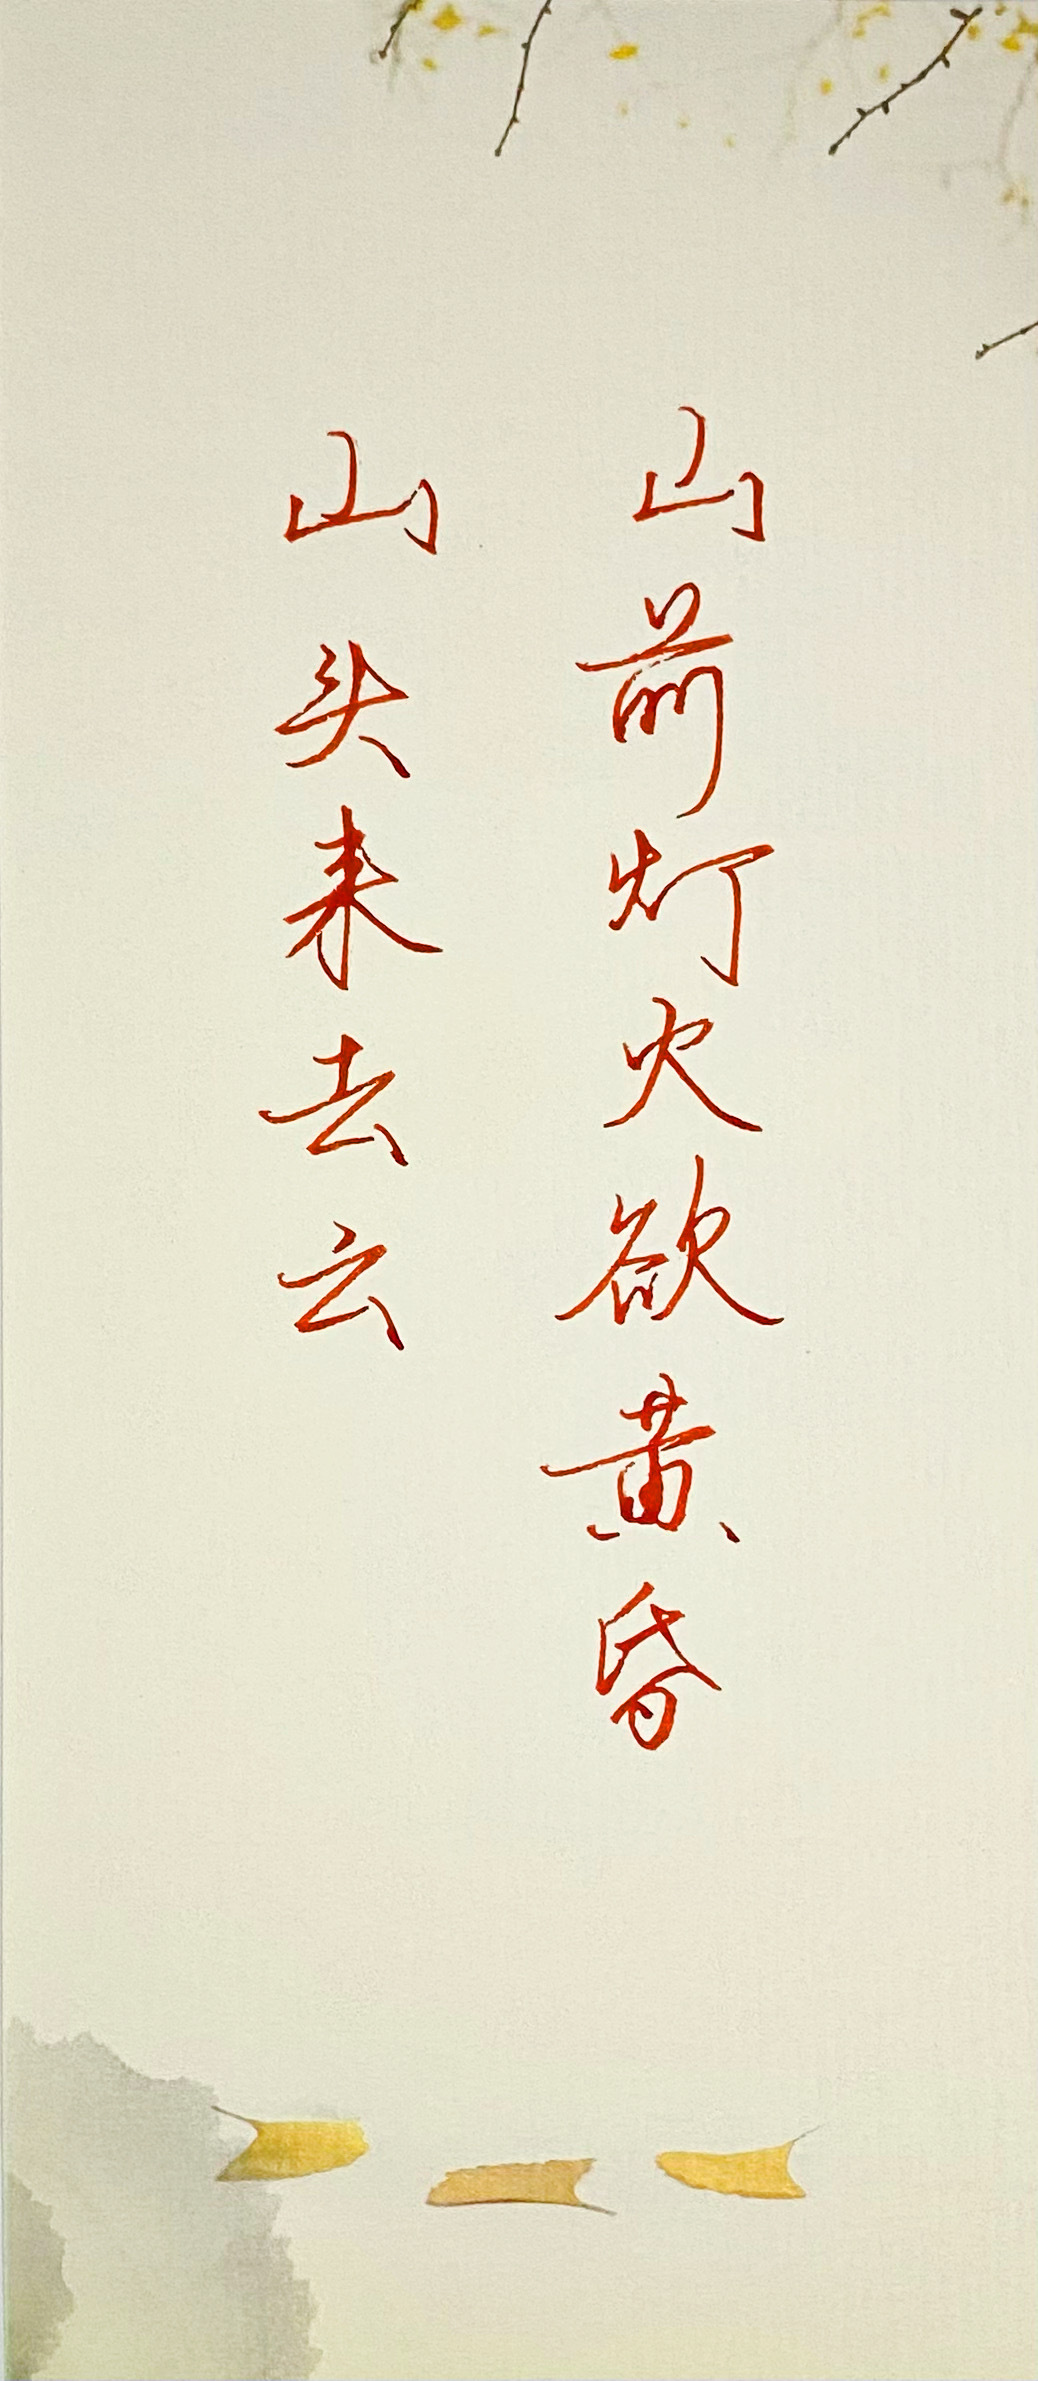 山前灯火欲黄昏
山头来去云